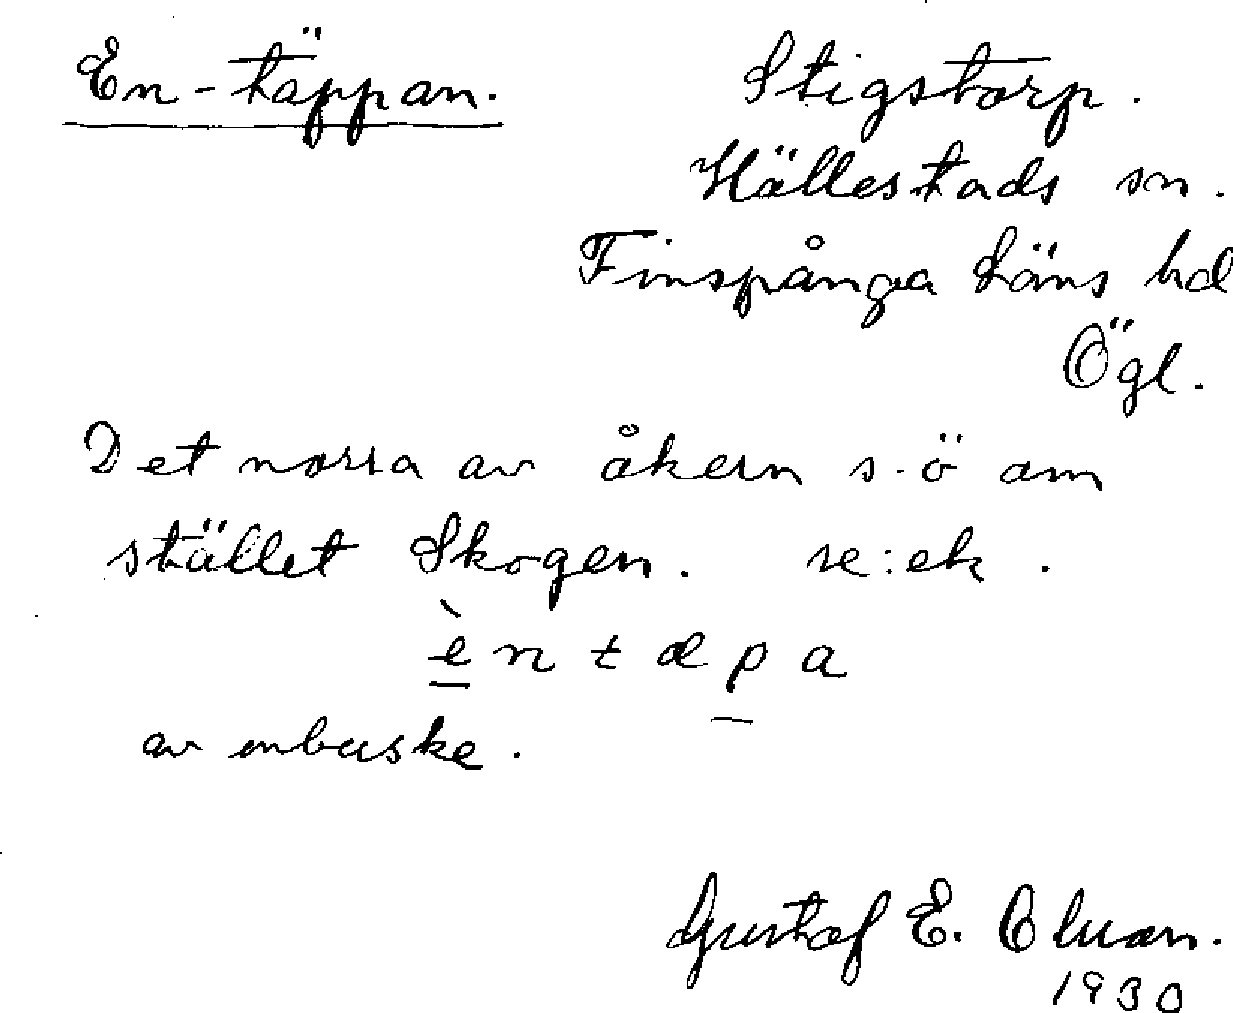 En-täppan.
Stigstorp.
Hällestads sn.
Finspånga läns hd
Ögl.
Det norra av åkern s.ö om
stället Skogen. se:ek.
èntæpa
av enbuske.
Gustaf E.
1930